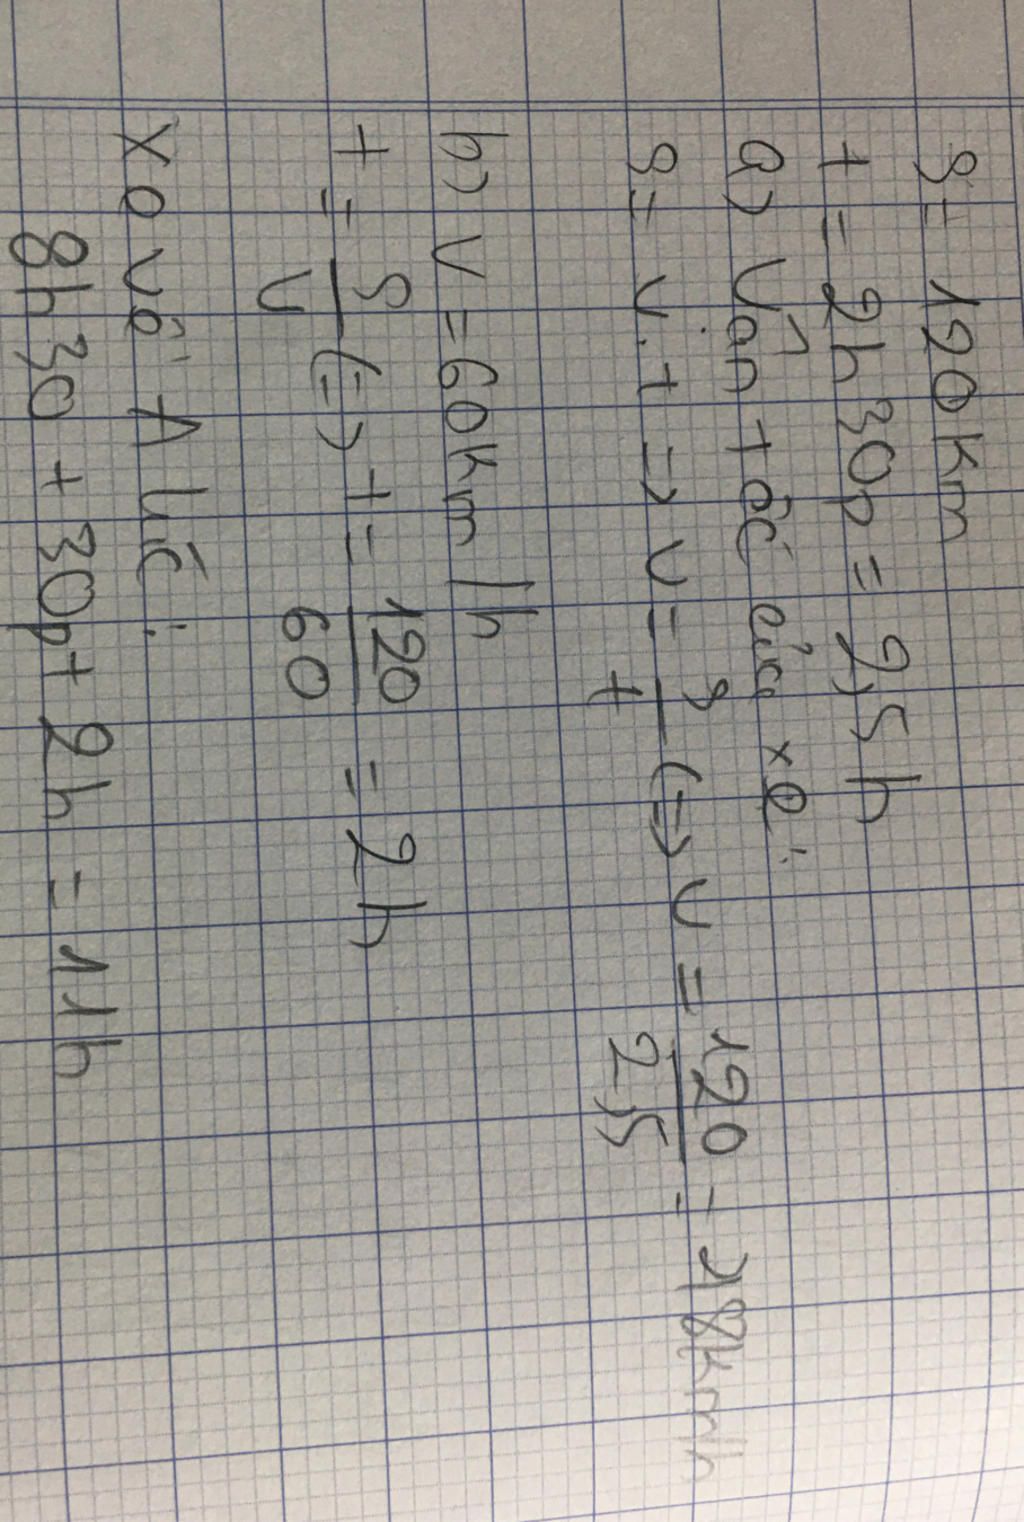 S = 120km
t = 2h30p = 2,5h
a) Vận tốc của xe:
S = v.t => v = S/t <=> v = 120/2,5 = 48km/h
b) v = 60km/h
t = S/v <=> t = 120/60 = 2h
Xe về A lúc:
8h30 + 30p + 2h = 11h